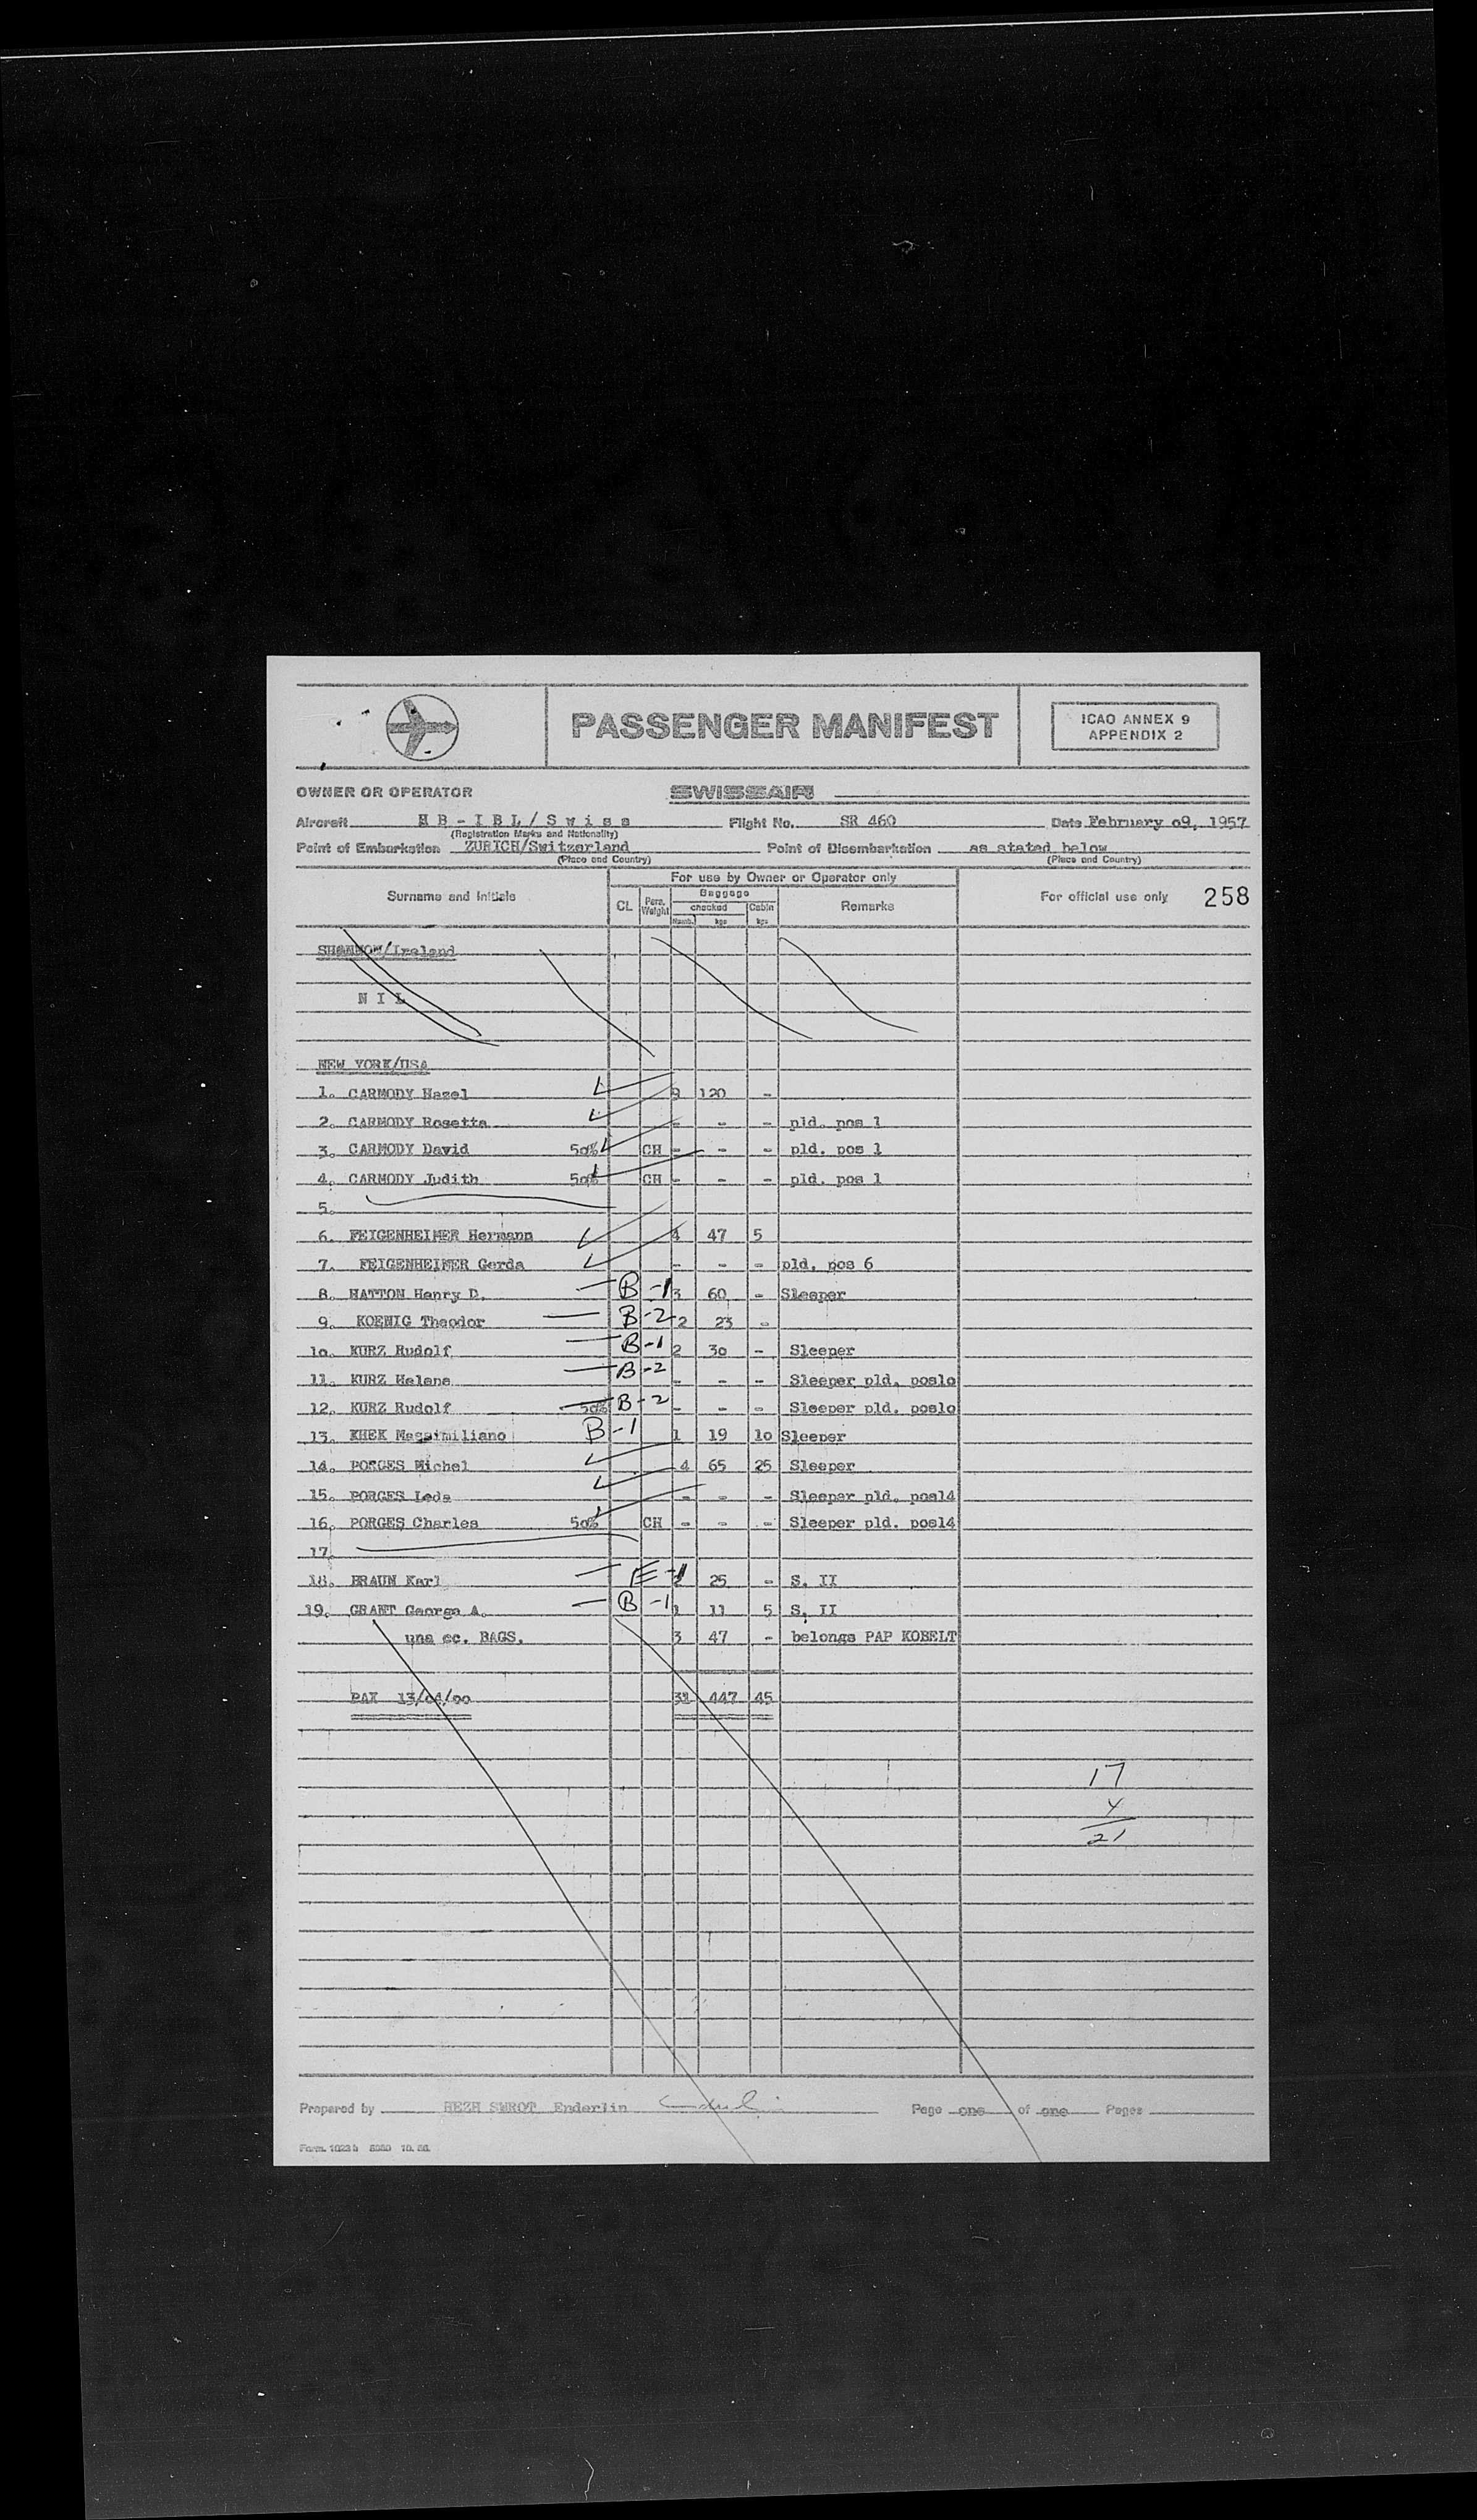 PASSENGER MANIFEST
ICAO ANNEX 9
APPENDIX 2
OWNER OR OPERATOR SWISSAIR
Aircraft HB-IBL/Swiss Flight No. SR 460 Date February o9, 1957
(Registration Marks and Nationality)
Point of Embarkation ZURICH/Switzerland Point of Disembarkation as stated below
(Place and Country) (Place and Country)
For use by Owner or Operator only
Surname and Initials CL Pers. Weight Baggage checked Numb. kgs Cabin kgs Remarks For official use only 258
SHANNON/Ireland
N I L
NEW YORK/USA
1. CARMODY Hazel 9 120 -
2. CARMODY Rosetta - - - pld. pos 1
3. CARMODY David 50% CH - - - pld. pos 1
4. CARMODY Judith 50% CH - - - pld. pos 1
5.
6. FEIGENHEIMER Hermann 4 47 5
7. FEIGENHEIMER Gerda - - - pld. pos 6
8. HATTON Henry D. B -1 3 60 - Sleeper
9. KOENIG Theodor B -2 2 23 -
10. KURZ Rudolf B -1 2 30 - Sleeper
11. KURZ Helene B -2 - - - Sleeper pld. pos1o
12. KURZ Rudolf 50% B -2 - - - Sleeper pld. pos1o
13. KHEK Massimiliano B -1 1 19 1o Sleeper
14. PORGES Michel 4 65 25 Sleeper
15. PORGES Leda - - - Sleeper pld. pos14
16. PORGES Charles 50% CH - - - Sleeper pld. pos14
17.
18. BRAUN Karl E -1 25 - S. II
19. GRANT George A. B -1 1 11 5 S. II
una ec. BAGS. 3 47 - belongs PAP KOBELT
PAX 13/o4/oo 31 447 45
17
4
21
Prepared by HEZH SWROT Enderlin Page one of one Pages
Form. 1023 b